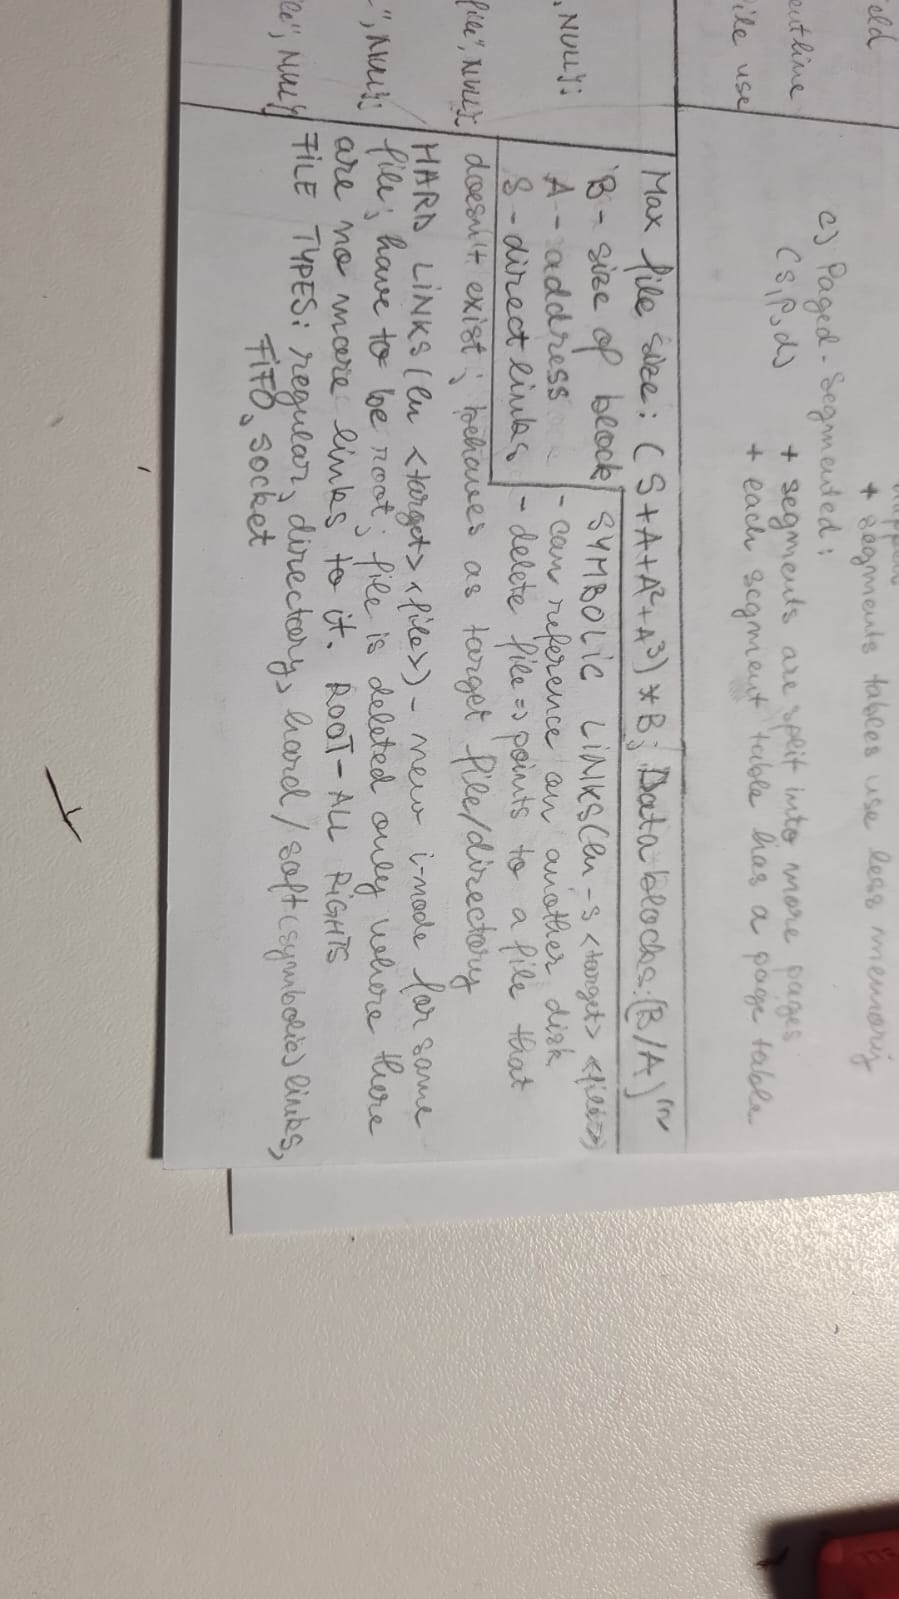 + segments tables use less memory
c) Paged-Segmented:
(s,p,d) + segments are split into more pages
+ each segment table has a page table
ile use
Max file size: (S+A+A²+A³)*B; Data blocks: (B/A)
B - size of block
A - address
S - direct links
SYMBOLIC LINKS (ln -s <target> <file>)
- can reference on another disk
- delete file => points to a file that
doesn't exist; behaves as target file/directory
HARD LINKS (ln <target> <file>) - new i-node for same
file; have to be root; file is deleted only where there
are no more links to it. ROOT - ALL RIGHTS
FILE TYPES: regular, directory, hard/soft (symbolic) links,
FIFO, socket
, NULL);
file", NULL);
", NULL);
le", NULL)